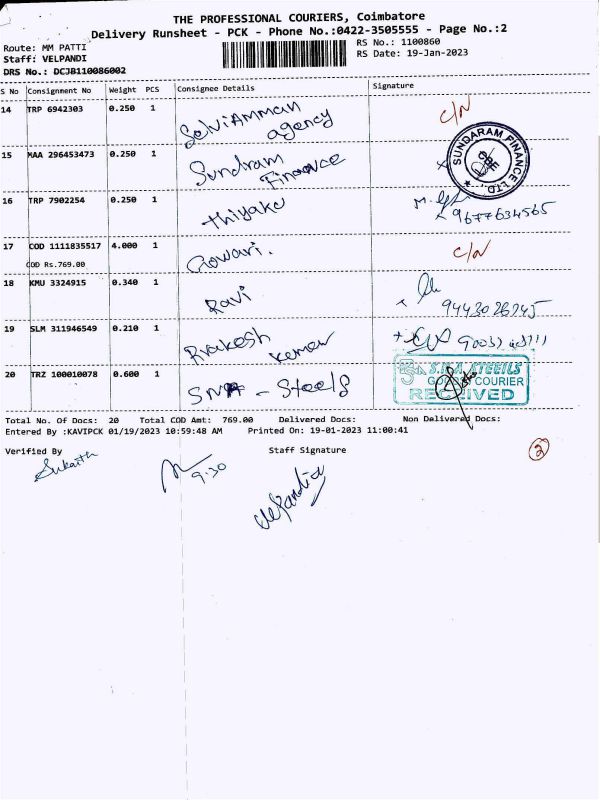 THE PROFESSIONAL COURIERS, Coimbatore
Delivery Runsheet - PCK - Phone No.:0422-3505555 - Page No.:2
Route: MM PATTI
RS No.: 1100860
Staff: VELPANDI
RS Date: 19-Jan-2023
DRS No.: DCJB110086002
S No Consignment No Weight PCS Consignee Details Signature
14 TRP 6942303 0.250 1 SelviAmman agency C/N
15 MAA 296453473 0.250 1 Sundram Finance SUNDARAM FINANCE LTD
16 TRP 7902254 0.250 1 thiyaku 9677634565
17 COD 1111835517 4.000 1 Gowari. C/N
COD Rs.769.00
18 KMU 3324915 0.340 1 Ravi
19 SLM 311946549 0.210 1 Prakash kumar
20 TRZ 100010078 0.600 1 SMA - Steels S.M.A. STEELS
COURIER
RECEIVED
Total No. Of Docs: 20 Total COD Amt: 769.00 Delivered Docs: Non Delivered Docs:
Entered By :KAVIPCK 01/19/2023 10:59:48 AM Printed On: 19-01-2023 11:00:41
Verified By Staff Signature
2
9.30
velpandia